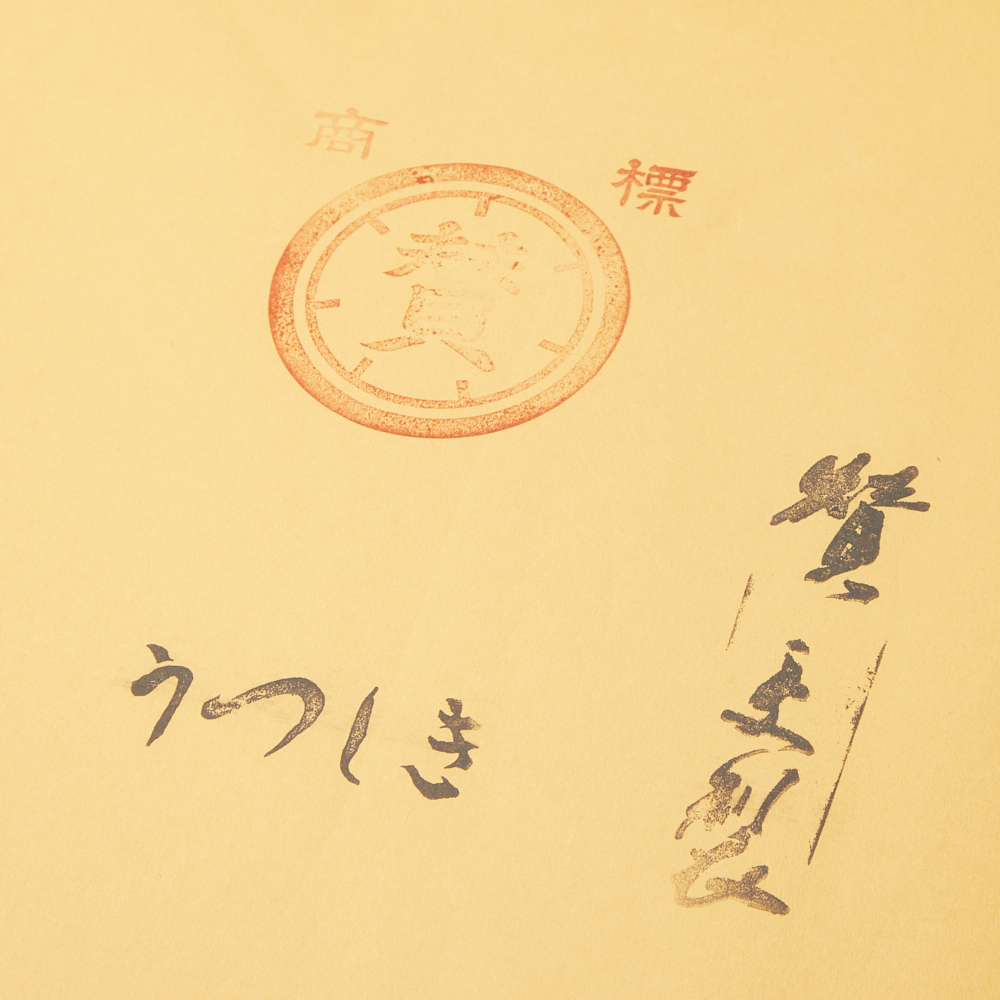 商標
賛
賛主製
うつしき